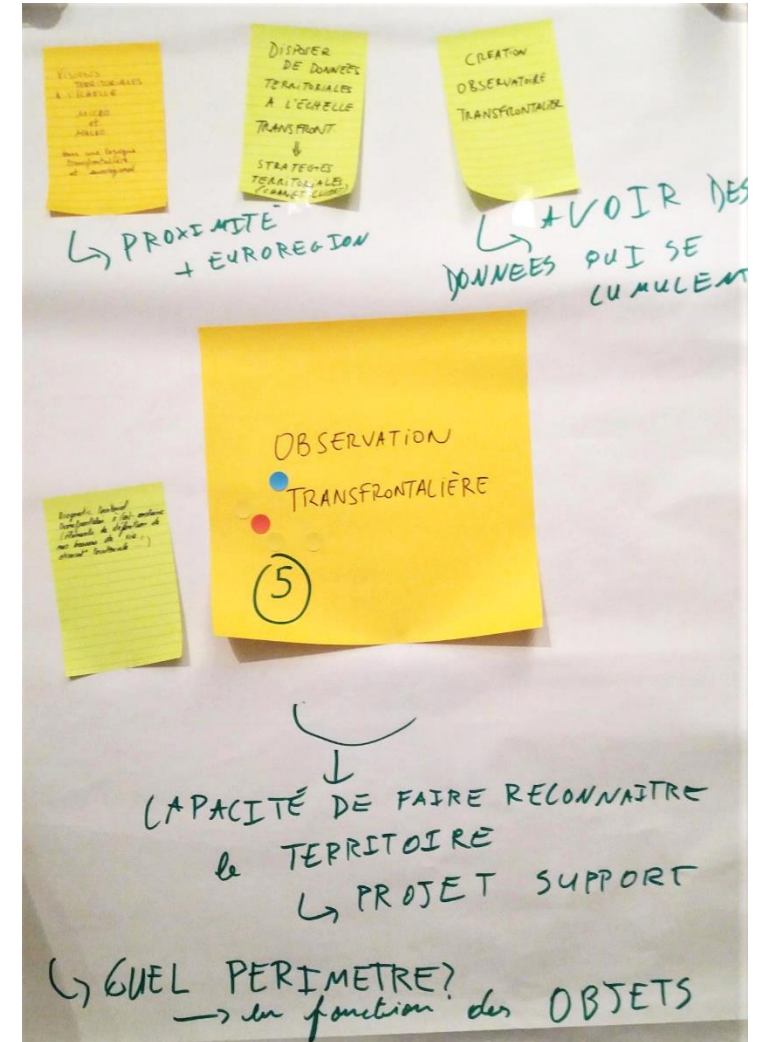 VISIONS
TERRITORIALES
A L'ÉCHELLE
MICRO
et
MACRO
dans une logique
transfrontalière
et eurorégional
DISPOSER
DE DONNÉES
TERRITORIALES
A L'ECHELLE
TRANSFRONT.
↓
STRATEGIES
TERRITORIALES
CREATION
OBSERVATOIRE
TRANSFRONTALIER
↳ PROXIMITÉ
+ EUROREGION
↳ AVOIR DES
DONNEES QUI SE
CUMULENT
OBSERVATION
TRANSFRONTALIÈRE
5
Diagnostic territorial
transfrontalier
éléments de définition de
nos bassins de vie,
↓
CAPACITÉ DE FAIRE RECONNAITRE
le TERRITOIRE
↳ PROJET SUPPORT
↳ QUEL PERIMETRE?
→ en fonction des OBJETS